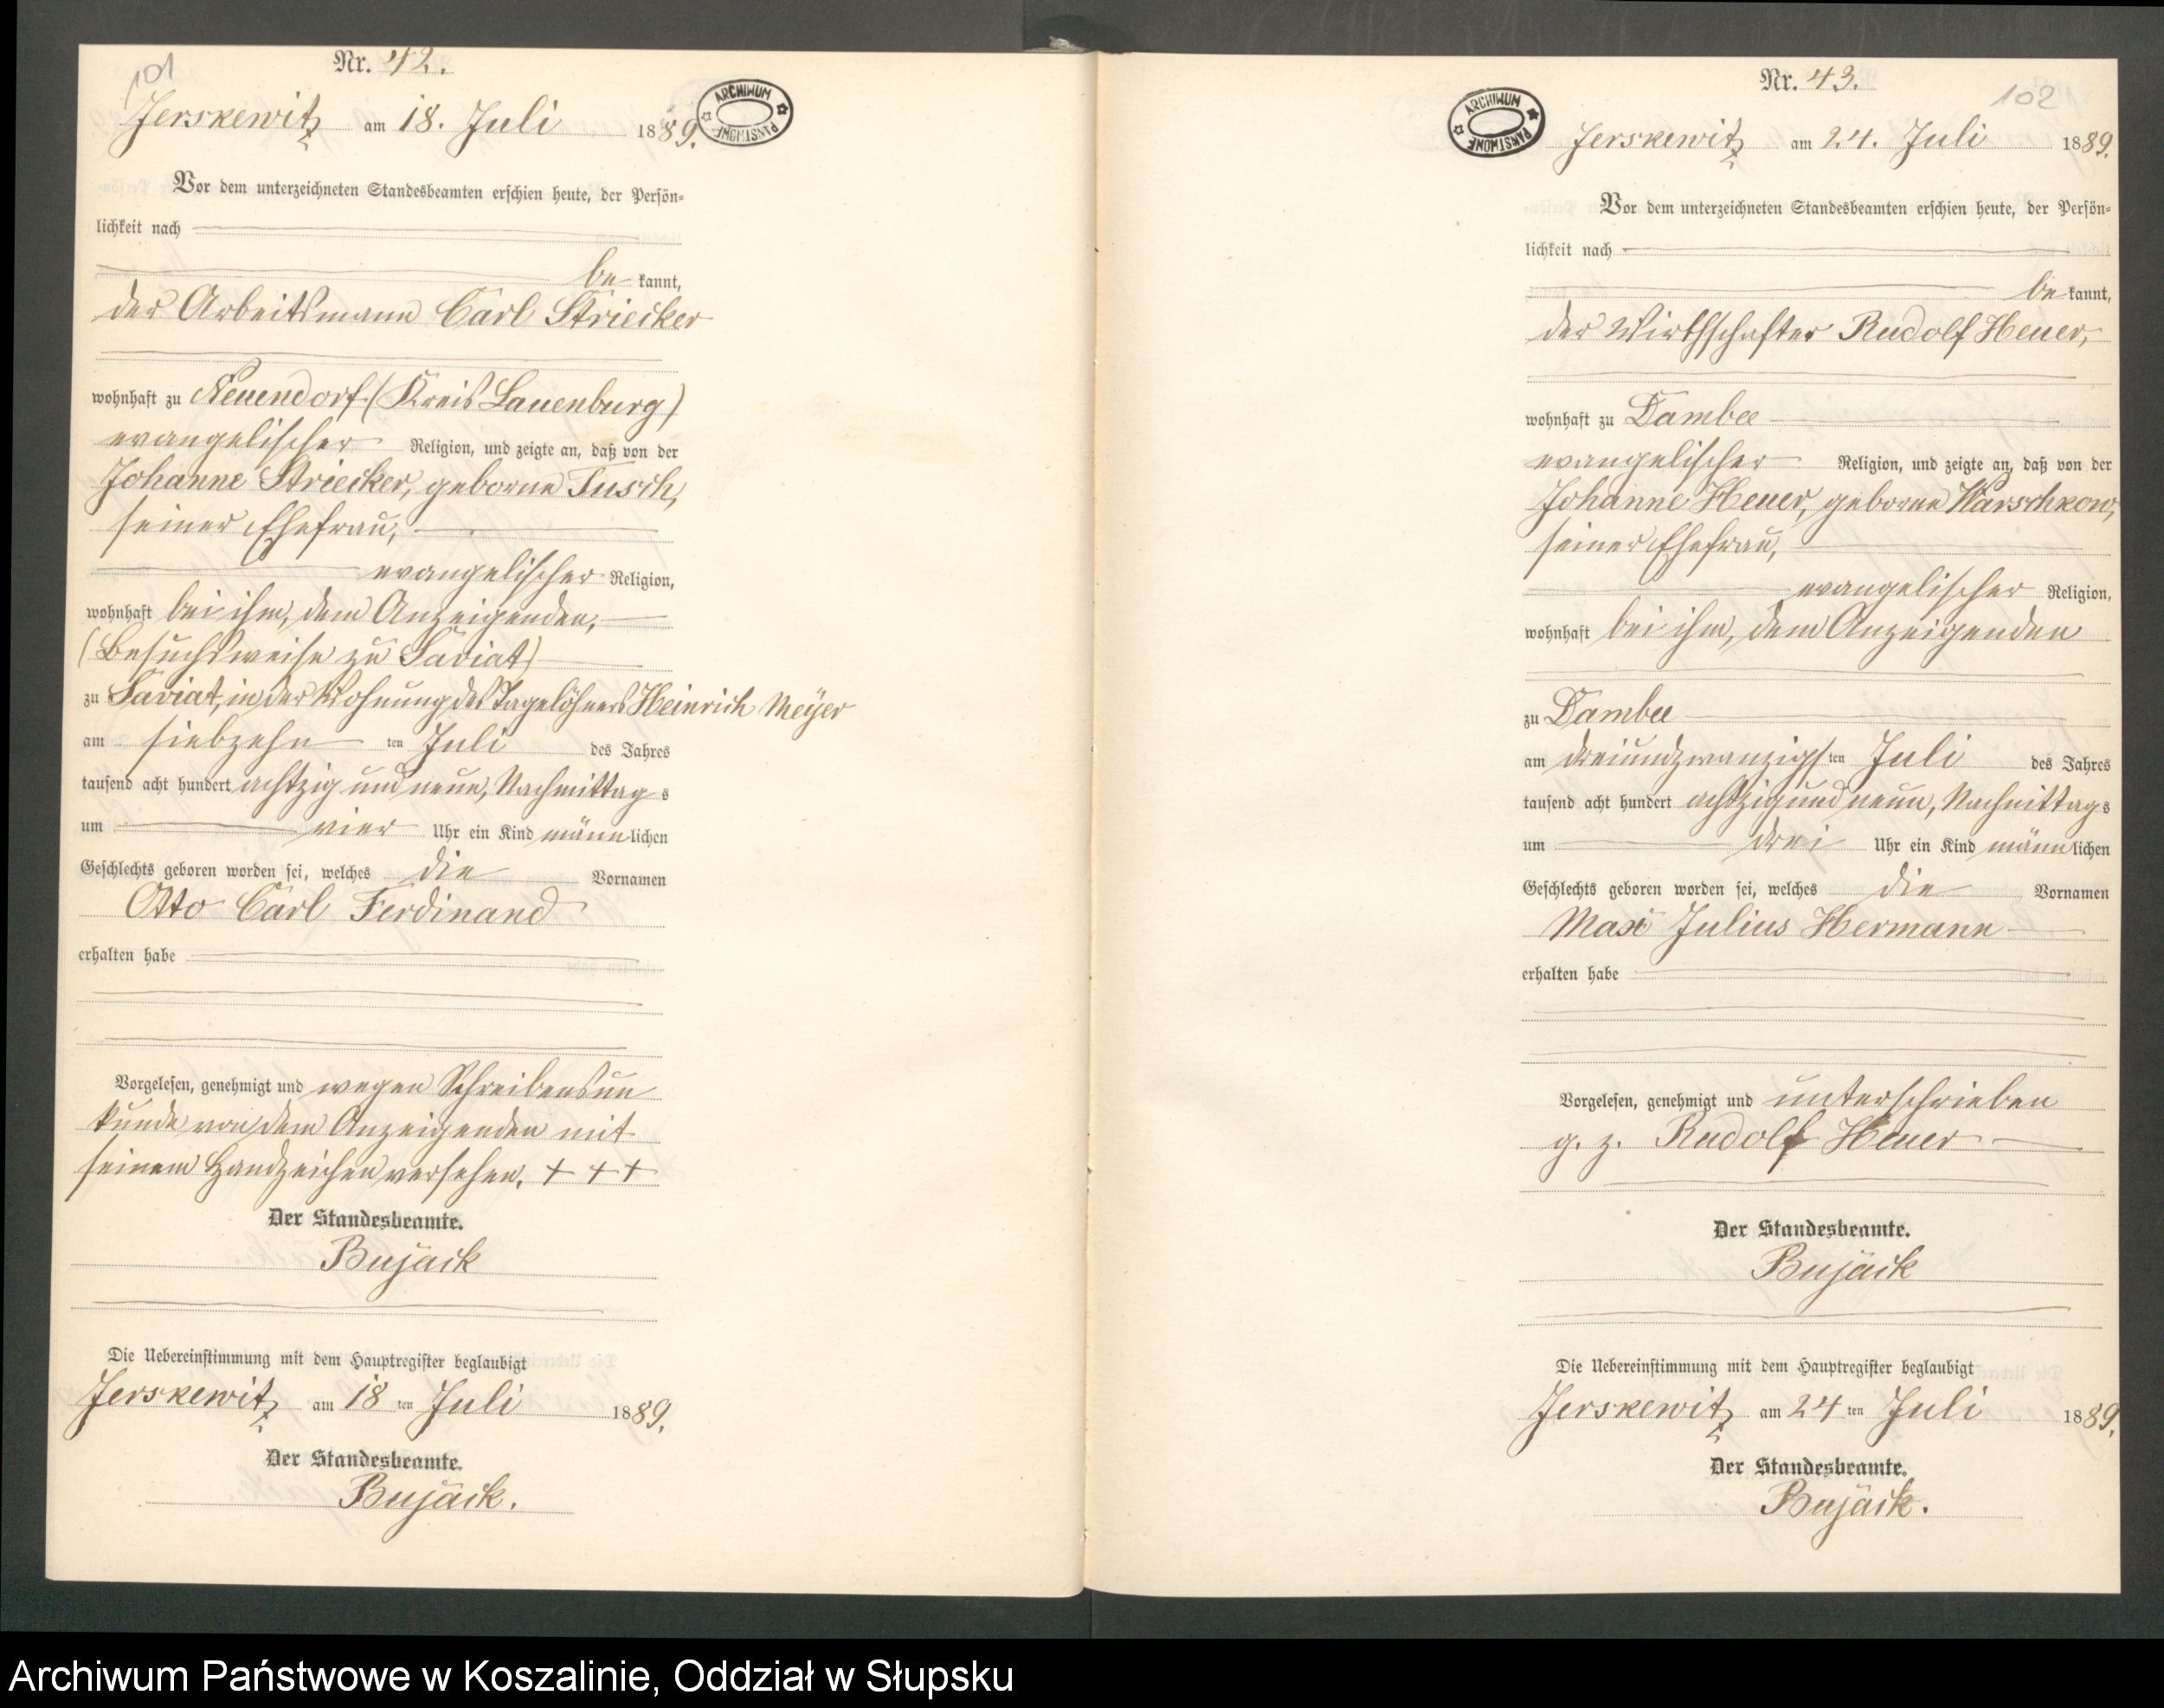 101
Nr. 42.
Jerskewitz am 18. Juli 1889.
ARCHIWUM PAŃSTWOWE
Vor dem unterzeichneten Standesbeamten erschien heute, der Persön-
lichkeit nach
be kannt,
der Arbeitsmann Carl Striecker
wohnhaft zu Neuendorf (Kreis Lauenburg)
evangelischer Religion, und zeigte an, daß von der
Johanne Striecker, geborne Tusch,
seiner Ehefrau,
evangelischer Religion,
wohnhaft bei ihm, dem Anzeigenden,
(Besuchsweise zu Saviat)
zu Saviat, in der Wohnung des Tagelöhners Heinrich Meÿer
am siebzehn ten Juli des Jahres
tausend acht hundert achtzig und neun, Nachmittag s
um vier Uhr ein Kind männlichen
Geschlechts geboren worden sei, welches die Vornamen
Otto Carl Ferdinand
erhalten habe
Vorgelesen, genehmigt und wegen Schreibensun
kunde von dem Anzeigenden mit
seinem Handzeichen versehen. + + +
Der Standesbeamte.
Bujack
Die Uebereinstimmung mit dem Hauptregister beglaubigt
Jerskewitz am 18 ten Juli 1889.
Der Standesbeamte.
Bujack.
Nr. 43.
102
ARCHIWUM PAŃSTWOWE
Jerskewitz am 24. Juli 1889.
Vor dem unterzeichneten Standesbeamten erschien heute, der Persön-
lichkeit nach
be kannt,
der Wirthschafter Rudolf Heuer,
wohnhaft zu Dambee
evangelischer Religion, und zeigte an, daß von der
Johanne Heuer, geborne Warschkow,
seiner Ehefrau,
evangelischer Religion,
wohnhaft bei ihm, dem Anzeigenden
zu Dambee
am dreiundzwanzigsten Juli des Jahres
tausend acht hundert achtzig und neun, Nachmittag s
um drei Uhr ein Kind männlichen
Geschlechts geboren worden sei, welches die Vornamen
Max Julius Hermann
erhalten habe
Vorgelesen, genehmigt und unterschrieben
g. z. Rudolf Heuer
Der Standesbeamte.
Bujack
Die Uebereinstimmung mit dem Hauptregister beglaubigt
Jerskewitz am 24 ten Juli 1889.
Der Standesbeamte.
Bujack.
Archiwum Państwowe w Koszalinie, Oddział w Słupsku